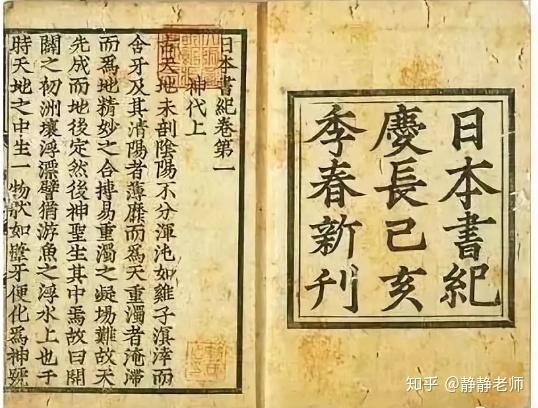 日本書紀
慶長己亥
季春新刊
日本書紀卷第一
神代上
古天地未剖陰陽不分渾沌如雞子溟涬而
含牙及其清陽者薄靡而爲天重濁者淹滯
而爲地精妙之合搏易重濁之凝場難故天
先成而地後定然後神聖生其中焉故曰開
闢之初洲壤浮漂譬猶游魚之浮水上也于
時天地之中生一物狀如葦牙便化爲神號
知乎 @静静老师